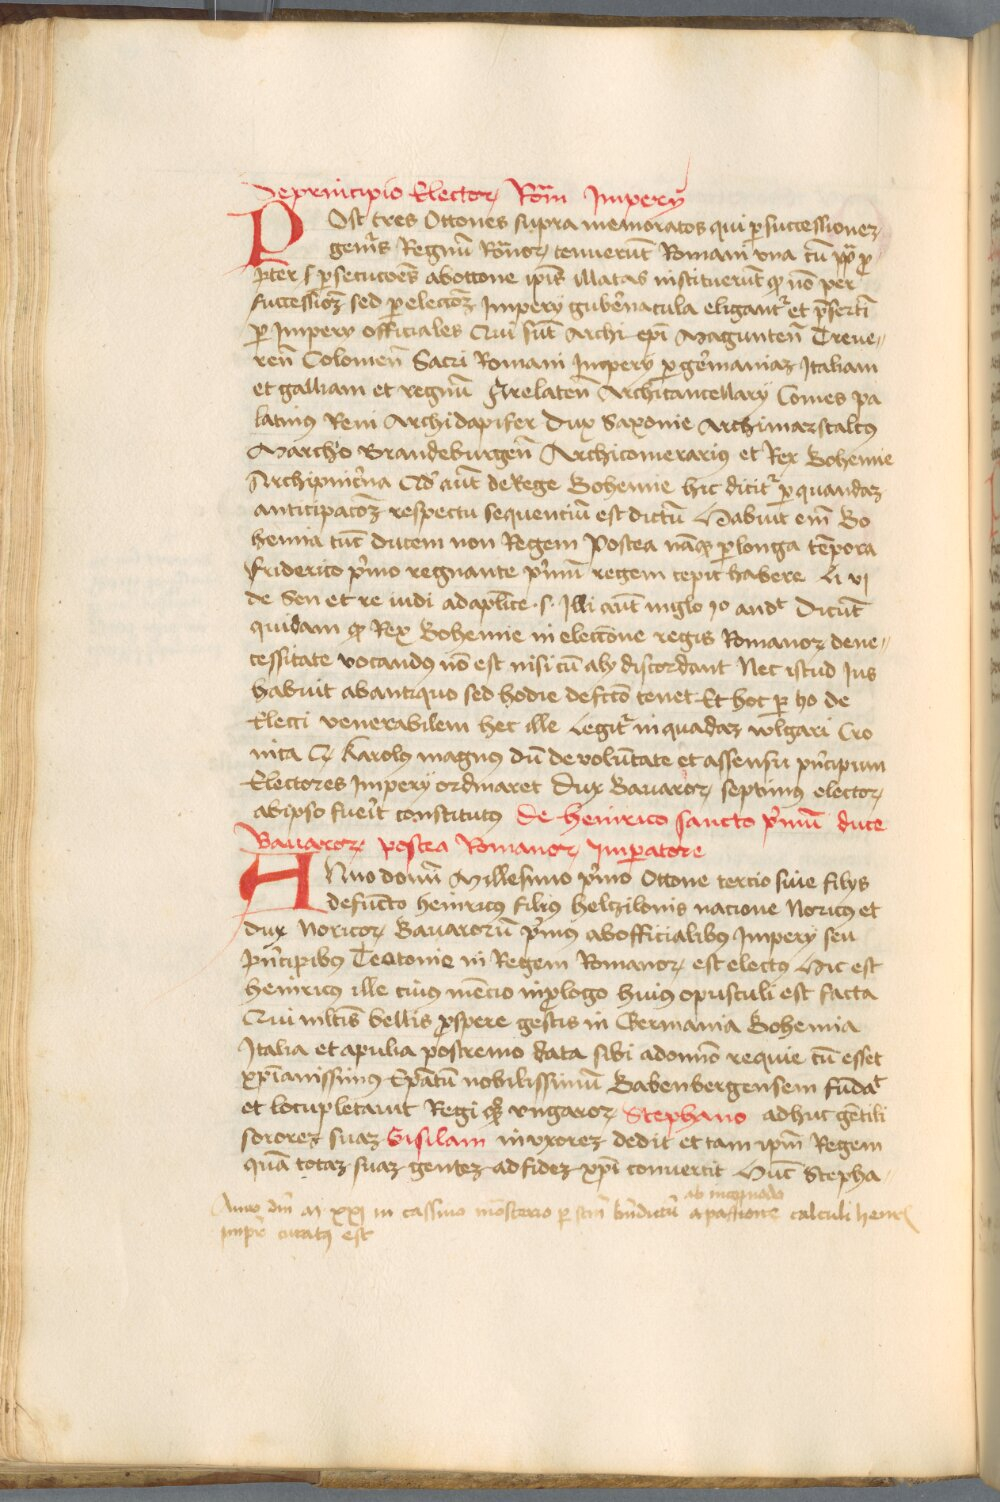 De principio Elector₂ Rom̄ Impery
POst tres Ottones supra memoratos qui ꝑ successionez
gen̄is Regnū Rōnor₂ tenuerūt Romani vna cū ꝑꝑ
ꝑter ꝑsecucoēs ab ottone ip̄is illatas instituerūt ꝙ nō per
successioēz sed ꝑ electōez Impery gub̄nacula eligant᷑ et p̄sertī
ꝑ Impery officiales Qui sūt Archi epī Magunten̄ Treue„
ren̄ Colonien̄ Sacri Romani Impery ꝑ gērmaniaz Italiam
et galliam et regnū Arelaten̄ Archicancellary Comes pa
latinus Reni Archidapifer Dux Saxonie Archimarscalcus
Marchō Brandeburgen̄ Archicomerarius et Rex Bohemie
Archipinc̄na Qd' aūt de Rege Bohemie hic dicit᷑ ꝑ quandaz
anticipacōz respectu sequenciū est dictū Habuit em̄ Bo
hemia tūc ducem non Regem Postea nāqꝫ ꝑ longa tēpora
friderico p'mo regnante p'mū regem cepit habere Li vj
de Sen et re iudi ad apl̄ice .s. Illi aūt in glo Jo and᷑ Dicūt
quidam ꝙ Rex Bohemie in electione regis Romanor₂ de ne„
cessitate vocandus nō est nisi cū aly discordant Nec istud Ius
habuit ab antiquo sed hodie de fctō tenet Et hoc ꝑ Jo de
Elecci venerabilem hec ille Legit᷑ in quadaz wlgari Cro
nica Q Karolus magnus dū de volūtate et assensu p'ncipum
Electores Impery ordinaret Dux Bauaror₂ septimus elector₂
ab ipso fuerit constitutus De heinrico sancto p'mū duce
Bauaror₂ postea Romanor₂ Imperatore
ANno domī Millesimo p'mo Ottone tercio sine filys
defuncto heinricus filius helczilonis nacione Noricus et
dux Noricor₂ Bauarorū p'mus ab officialibus Impery seu
p'ncipibus Teotonie in Regem Romanor₂ est electus Hic est
heinricus ille cuius mēcio in ꝓlogo huius opusculi est facta
Qui mltis bellis ꝓspere gestis in Germania Bohemia
Italia et apulia postremo data sibi a domīo requie cū esset
xp̄ianissimus Ep̄atū nobilissimū Babenbergensem fūda᷑
et locupletauit Regi qꝫ vngaror₂ Stephano adhuc gētili
sororez suaz Gisilam in vxorez dedit et tam ip̄m Regem
quā totaz suaz gentez ad fidez xp̄i conuertit Hūc Stepha„
ab incomodo
Anno dn̄i M xxj in cassino mōsterio ꝑ sctm̄ bn̄dictū a passione calculi henr
impr̄ curatus est